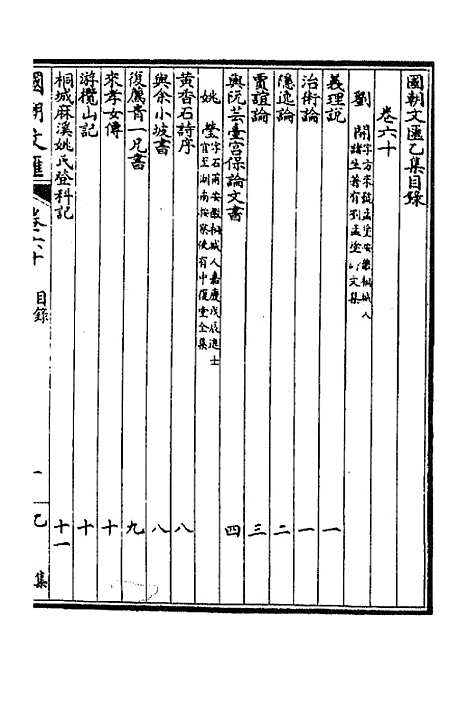 國朝文匯乙集目錄
卷六十
劉開 字方來號孟塗安徽桐城人諸生著有劉孟塗文集
義理說 一
治術論 一
隱逸論 二
賈誼論 三
與阮芸臺宮保論文書 四
姚瑩 字石甫安徽桐城人嘉慶戊辰進士官至湖南按察使有中復堂全集
黃香石詩序 八
與余小坡書 八
復鷹青一兄書 九
來孝女傳 十
游欖山記 十
桐城麻溪姚氏登科記 十一
國朝文匯 卷六十 目錄 一 乙集